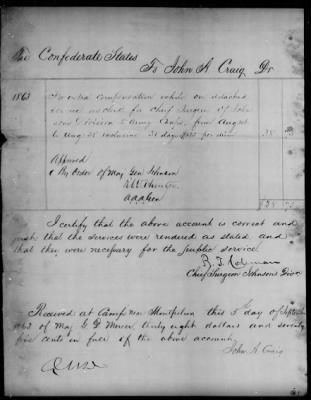 The Confederate States
To John A Craig Dr
1863 To extra compensation while on detached
service as clerk for Chief Surgeon of John
sons Division from August
to Aug 31 inclusive 31 days per diem 38 75
Approved
By Order of Maj Genl Johnson
A A Genl
38 75
I certify that the above account is correct and
that the services were rendered as stated and
that they were necessary for the public service.
R. T. Coleman
Chief Surgeon Johnsons Divn
Received at Camp near Montpelier this 5th day of Sept
of Maj E D thirty eight dollars and seventy
five cents in full of the above account
John A Craig